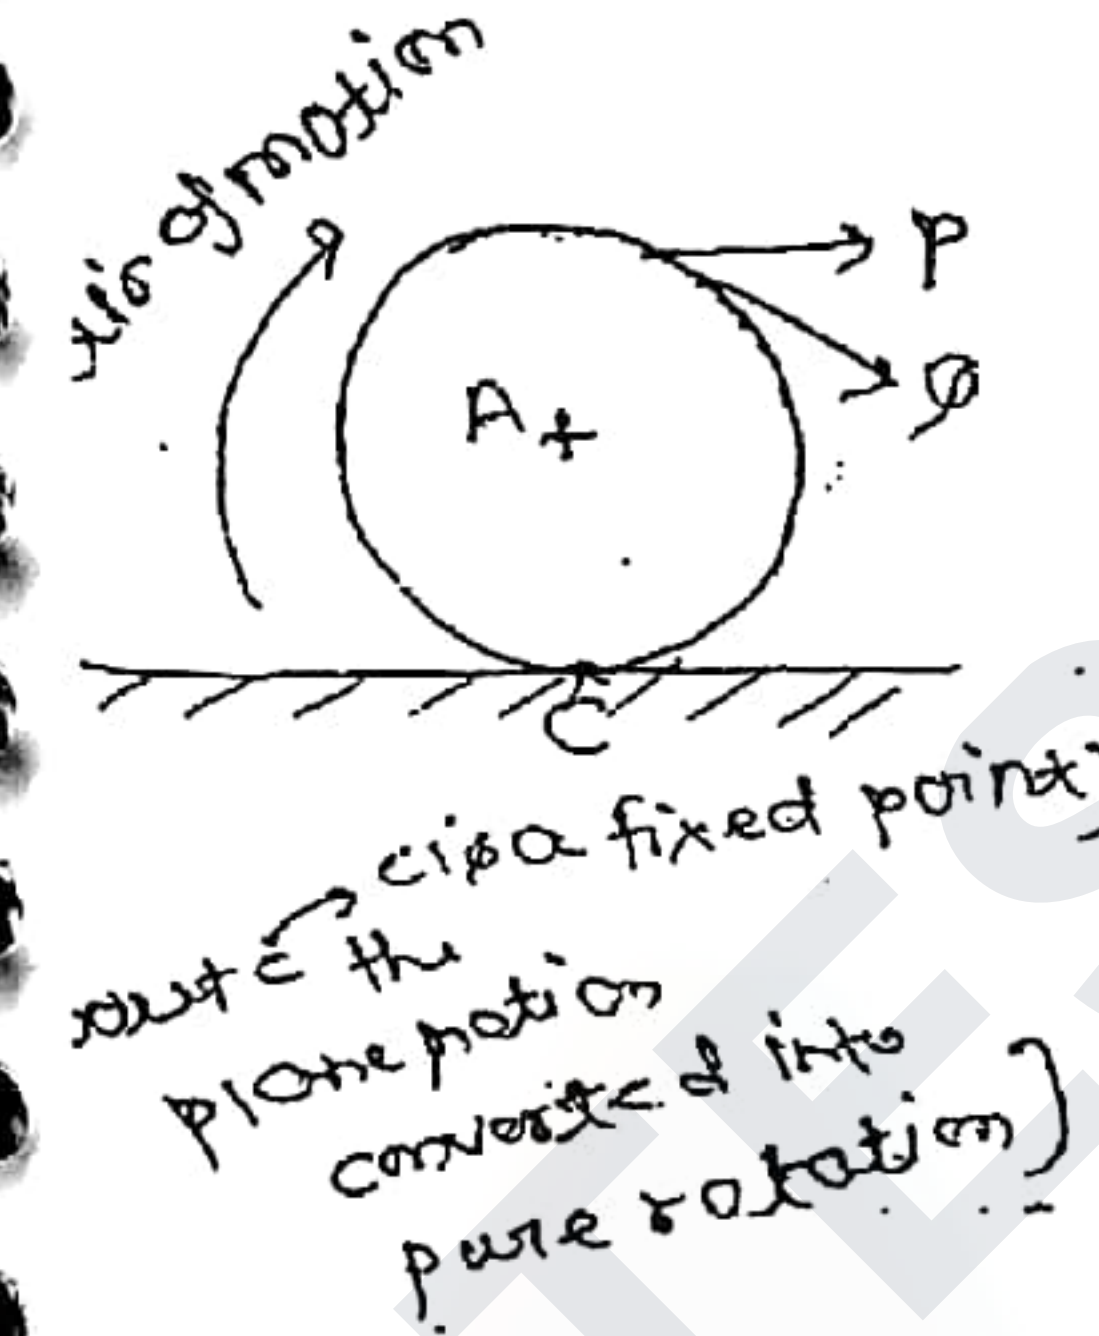 of motion
P
Q
A
C
c is a fixed point
c the
plane motion
converted into
pure rotation)